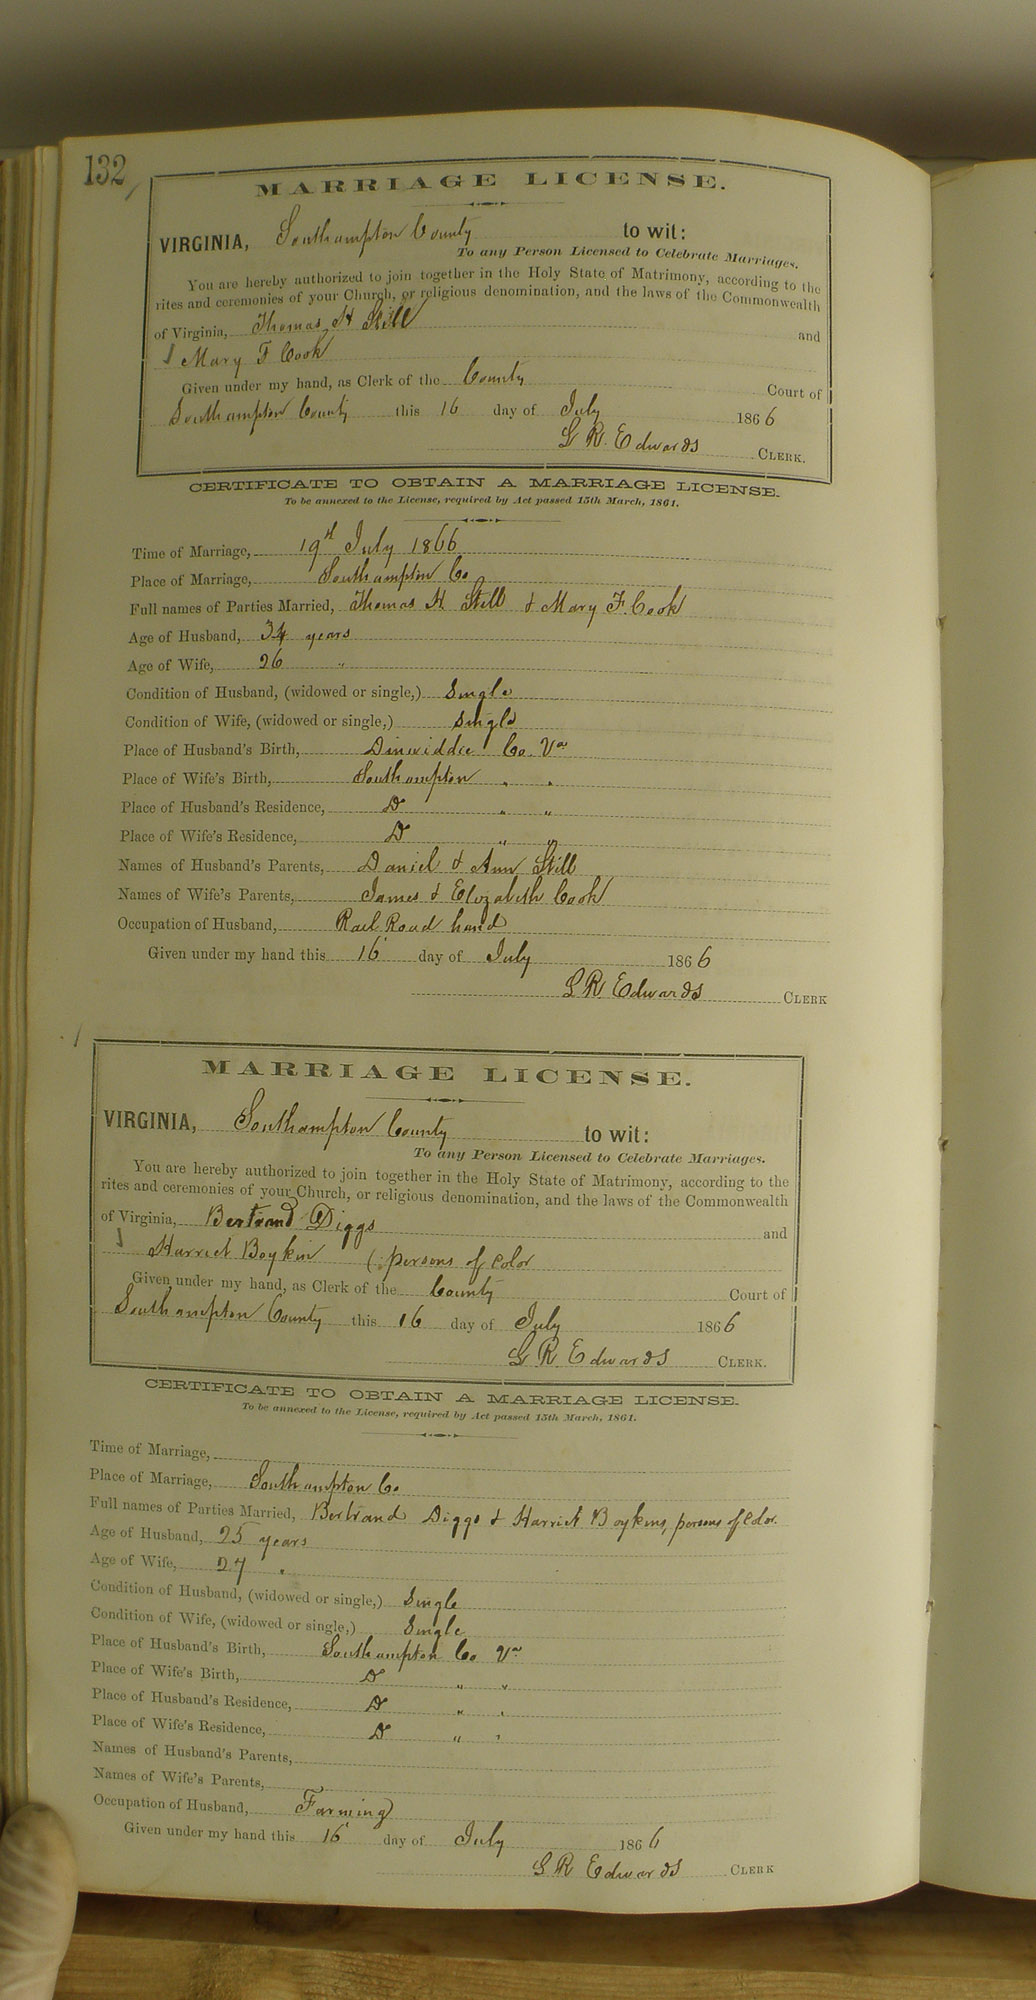 132
MARRIAGE LICENSE.
VIRGINIA, Southampton County to wit:
To any Person Licensed to Celebrate Marriages.
You are hereby authorized to join together in the Holy State of Matrimony, according to the
rites and ceremonies of your Church, or religious denomination, and the laws of the Commonwealth
of Virginia, Thomas H Still and
Mary F Cook
Given under my hand, as Clerk of the County Court of
Southampton County this 16 day of July 1866
G R. Edwards CLERK.
CERTIFICATE TO OBTAIN A MARRIAGE LICENSE.
To be annexed to the License, required by Act passed 15th March, 1861.
Time of Marriage, 19th July 1866
Place of Marriage, Southampton Co
Full names of Parties Married, Thomas H Still & Mary F. Cook
Age of Husband, 34 years
Age of Wife, 26 "
Condition of Husband, (widowed or single,) Single
Condition of Wife, (widowed or single,) Single
Place of Husband's Birth, Dinwiddie Co. Va
Place of Wife's Birth, Southampton " "
Place of Husband's Residence, Do " "
Place of Wife's Residence, Do " "
Names of Husband's Parents, Daniel & Ann Still
Names of Wife's Parents, James & Elizabeth Cook
Occupation of Husband, Rail Road hand
Given under my hand this 16 day of July 1866
G R. Edwards CLERK
MARRIAGE LICENSE.
VIRGINIA, Southampton County to wit:
To any Person Licensed to Celebrate Marriages.
You are hereby authorized to join together in the Holy State of Matrimony, according to the
rites and ceremonies of your Church, or religious denomination, and the laws of the Commonwealth
of Virginia, Bertrand Diggs and
Harriet Boykin (persons of color
Given under my hand, as Clerk of the County Court of
Southampton County this 16 day of July 1866
G R Edwards CLERK.
CERTIFICATE TO OBTAIN A MARRIAGE LICENSE.
To be annexed to the License, required by Act passed 15th March, 1861.
Time of Marriage,
Place of Marriage, Southampton Co
Full names of Parties Married, Bertrand Diggs & Harriet Boykins, persons of color.
Age of Husband, 25 years
Age of Wife, 27 "
Condition of Husband, (widowed or single,) Single
Condition of Wife, (widowed or single,) Single
Place of Husband's Birth, Southampton Co Va
Place of Wife's Birth, Do " "
Place of Husband's Residence, Do " "
Place of Wife's Residence, Do " "
Names of Husband's Parents,
Names of Wife's Parents,
Occupation of Husband, Farming
Given under my hand this 16 day of July 1866
G R Edwards CLERK